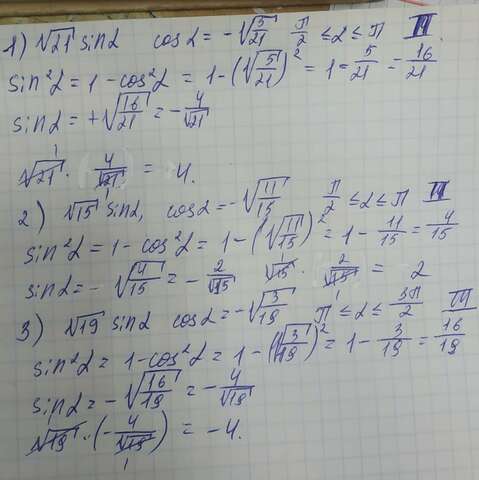 1) √21 sinα cosα = -√5/21 П/2 ≤ α ≤ П II
sin²α = 1 - cos²α = 1 - (√5/21)² = 1 - 5/21 = 16/21
sinα = +√16/21 = - 4/√21
√21 · 4/√21 = 4.
2) √15 sinα, cosα = -√11/15 П/2 ≤ α ≤ П II
sin²α = 1 - cos²α = 1 - (√11/15)² = 1 - 11/15 = 4/15
sinα = - √4/15 = - 2/√15 √15 · 2/√15 = 2
3) √19 sinα cosα = -√3/19 П ≤ α ≤ 3П/2 III
sin²α = 1 - cos²α = 1 - (√3/19)² = 1 - 3/19 = 16/19
sinα = - √16/19 = - 4/√19
√19 · (- 4/√19) = -4.